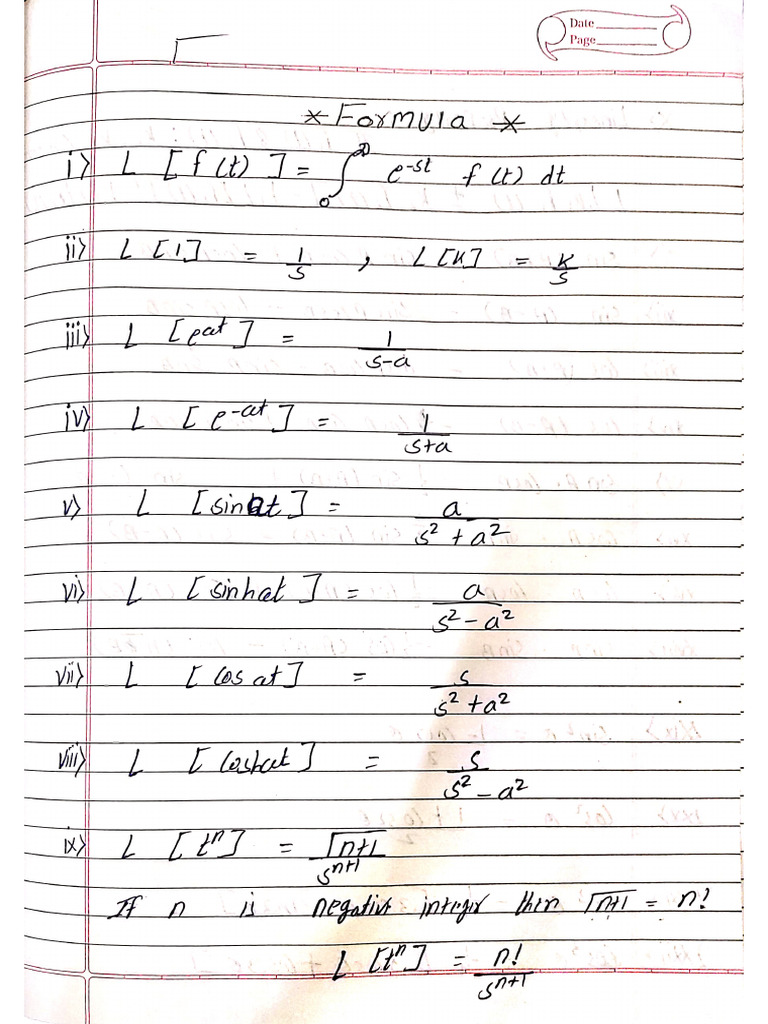 Date
Page
* Formula *
i> L [f(t)] = ∫₀^∞ e^-st f(t) dt
ii> L [1] = 1/s , L[k] = k/s
iii> L [e^at] = 1/(s-a)
iv> L [e^-at] = 1/(s+a)
v> L [sin at] = a/(s²+a²)
vi> L [sinhat] = a/(s²-a²)
vii> L [cos at] = s/(s²+a²)
viii> L [coshat] = s/(s²-a²)
ix> L [t^n] = Γ(n+1)/s^(n+1)
If n is negative integer then Γ(n+1) = n!
L [t^n] = n!/s^(n+1)